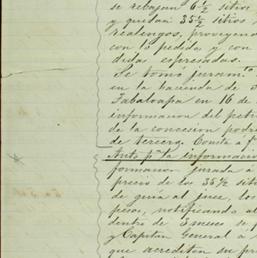 se rebajan 6½ sitios
y quedan 35½ sitios,
realengos, proveyendo
con lo pedido y con
didas espresadas.
Se tomó juram.to
en la hacienda de
Tabaloapa en 16 de
informacion del peti
de la concesion podrí
de tercero. Consta a f
Auto p.a la informacio
formacion jurada a
precio de los 35½ sitios
de guia al juez, los
pesos, notificando al
dentro de 5 meses
y Capitan General a
que acrediten su pr